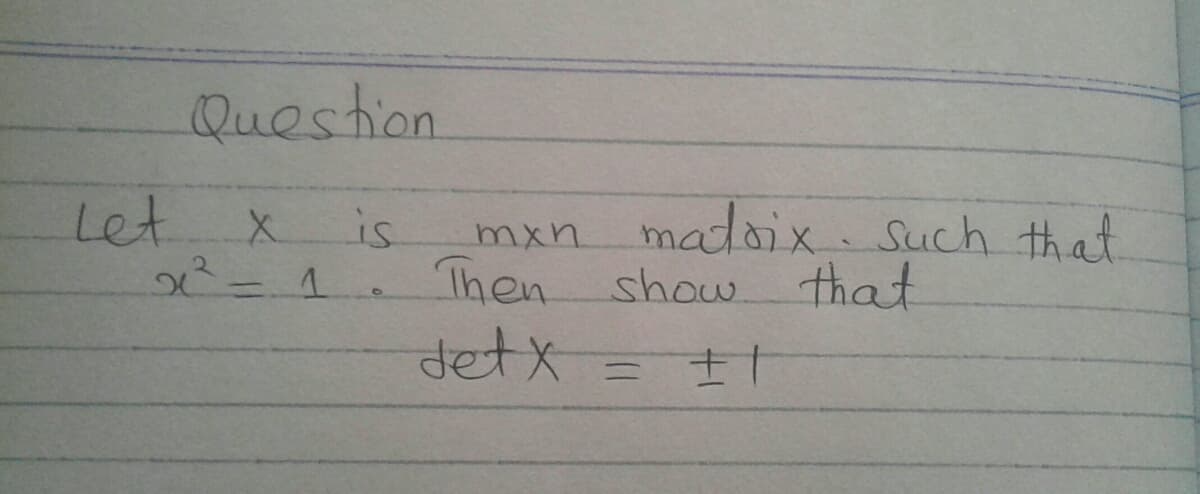 Question
Let x is mxn matrix. Such that
x² = 1. Then show that
det x = ±1